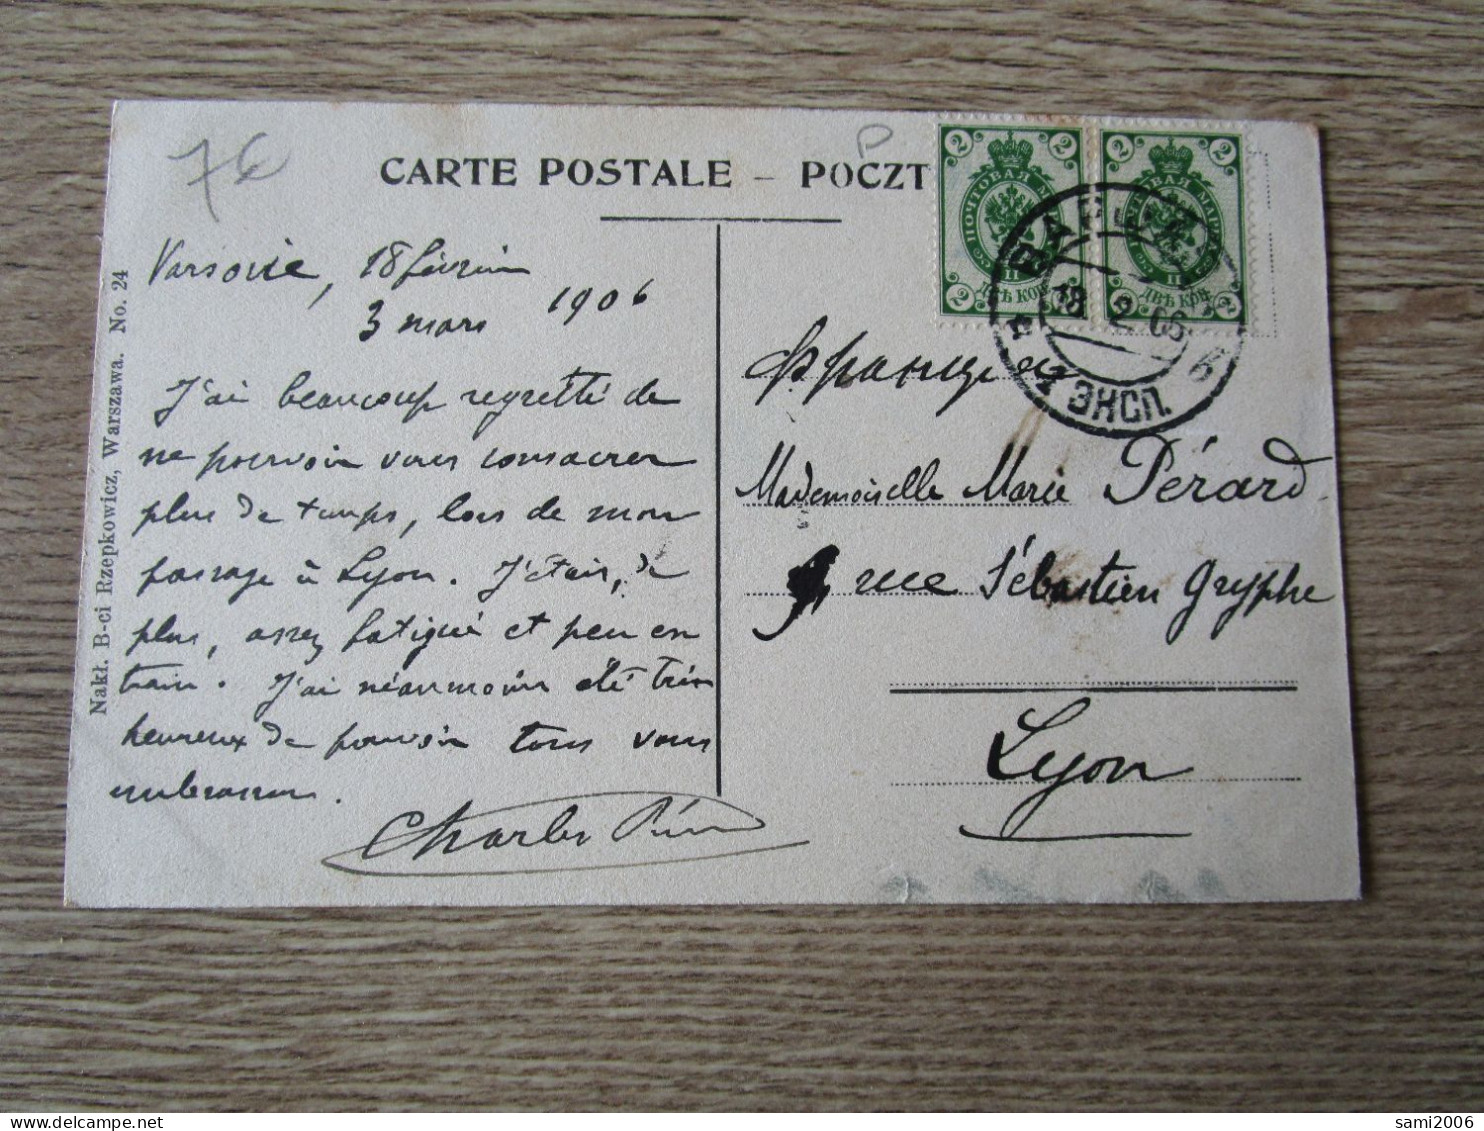 76
P
CARTE POSTALE – POCZT
2 2 2 2
ПОЧТОВАЯ МАРКА
ДВѢ КОП.
ВАРШАВА
18 2 06
1 ЭКСП.
Nakł. B-ci Rzepkowicz, Warszawa. No. 24
Varsovie, 18 février
3 mars 1906
J'ai beaucoup regretté de
ne pouvoir vous consacrer
plus de temps, lors de mon
passage à Lyon. J'étais, de
plus, assez fatigué et peu en
train. J'ai néanmoins été très
heureux de pouvoir tous vous
embrasser.
Charles
Франция
Mademoiselle Marie Pérard
9 rue Sébastien Gryphe
Lyon
sami2006